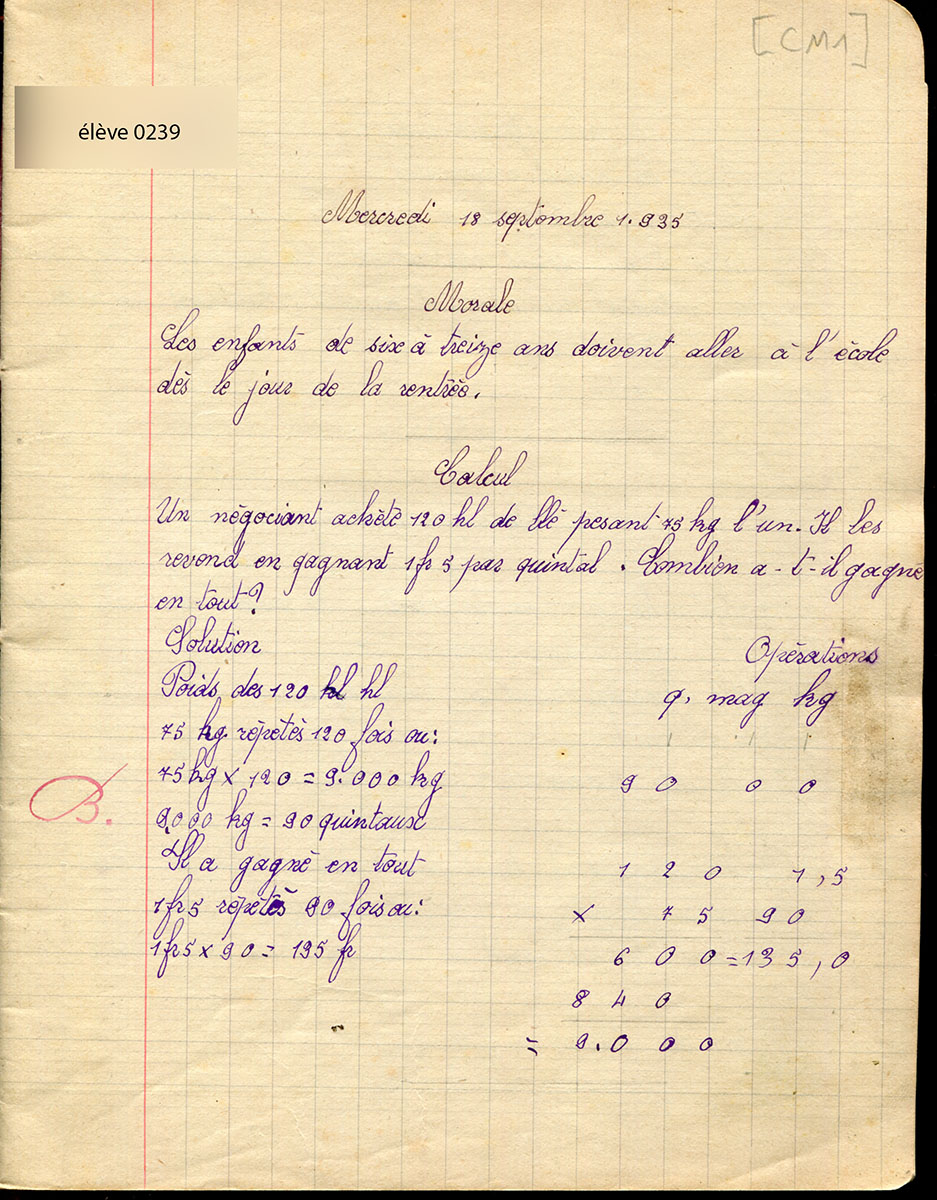 [CM1]
élève 0239
Mercredi 18 septembre 1.935
Morale
Les enfants de six à treize ans doivent aller à l'école
dès le jour de la rentrée.
Calcul
Un négociant achète 120 hl de blé pesant 75 kg l'un. Il les
revend en gagnant 1fr5 par quintal. Combien a-t-il gagné
en tout?
Solution
Opérations
Poids des 120 hl hl
q, mag kg
75 kg répétés 120 fois ou:
75 kg x 120 = 9.000 kg
90 0 0
B.
9.000 kg = 90 quintaux
Il a gagné en tout
1 2 0 1,5
1fr5 répétés 90 fois ou:
x 7 5 90
1fr5 x 90 = 135 fr
6 0 0 =135,0
8 4 0
= 9.0 0 0